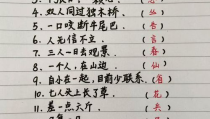 4. 双人同过独木桥。(丛)
5. 一口咬断牛尾巴。(告)
6. 人无信不立。(言)
7. 三人一日去观景。(春)
8. 一个人，在山边。(仙)
9. 自小在一起，目前少联系。(省)
10. 七人头上长了草。(花)
11. 差一点六斤。(兵)